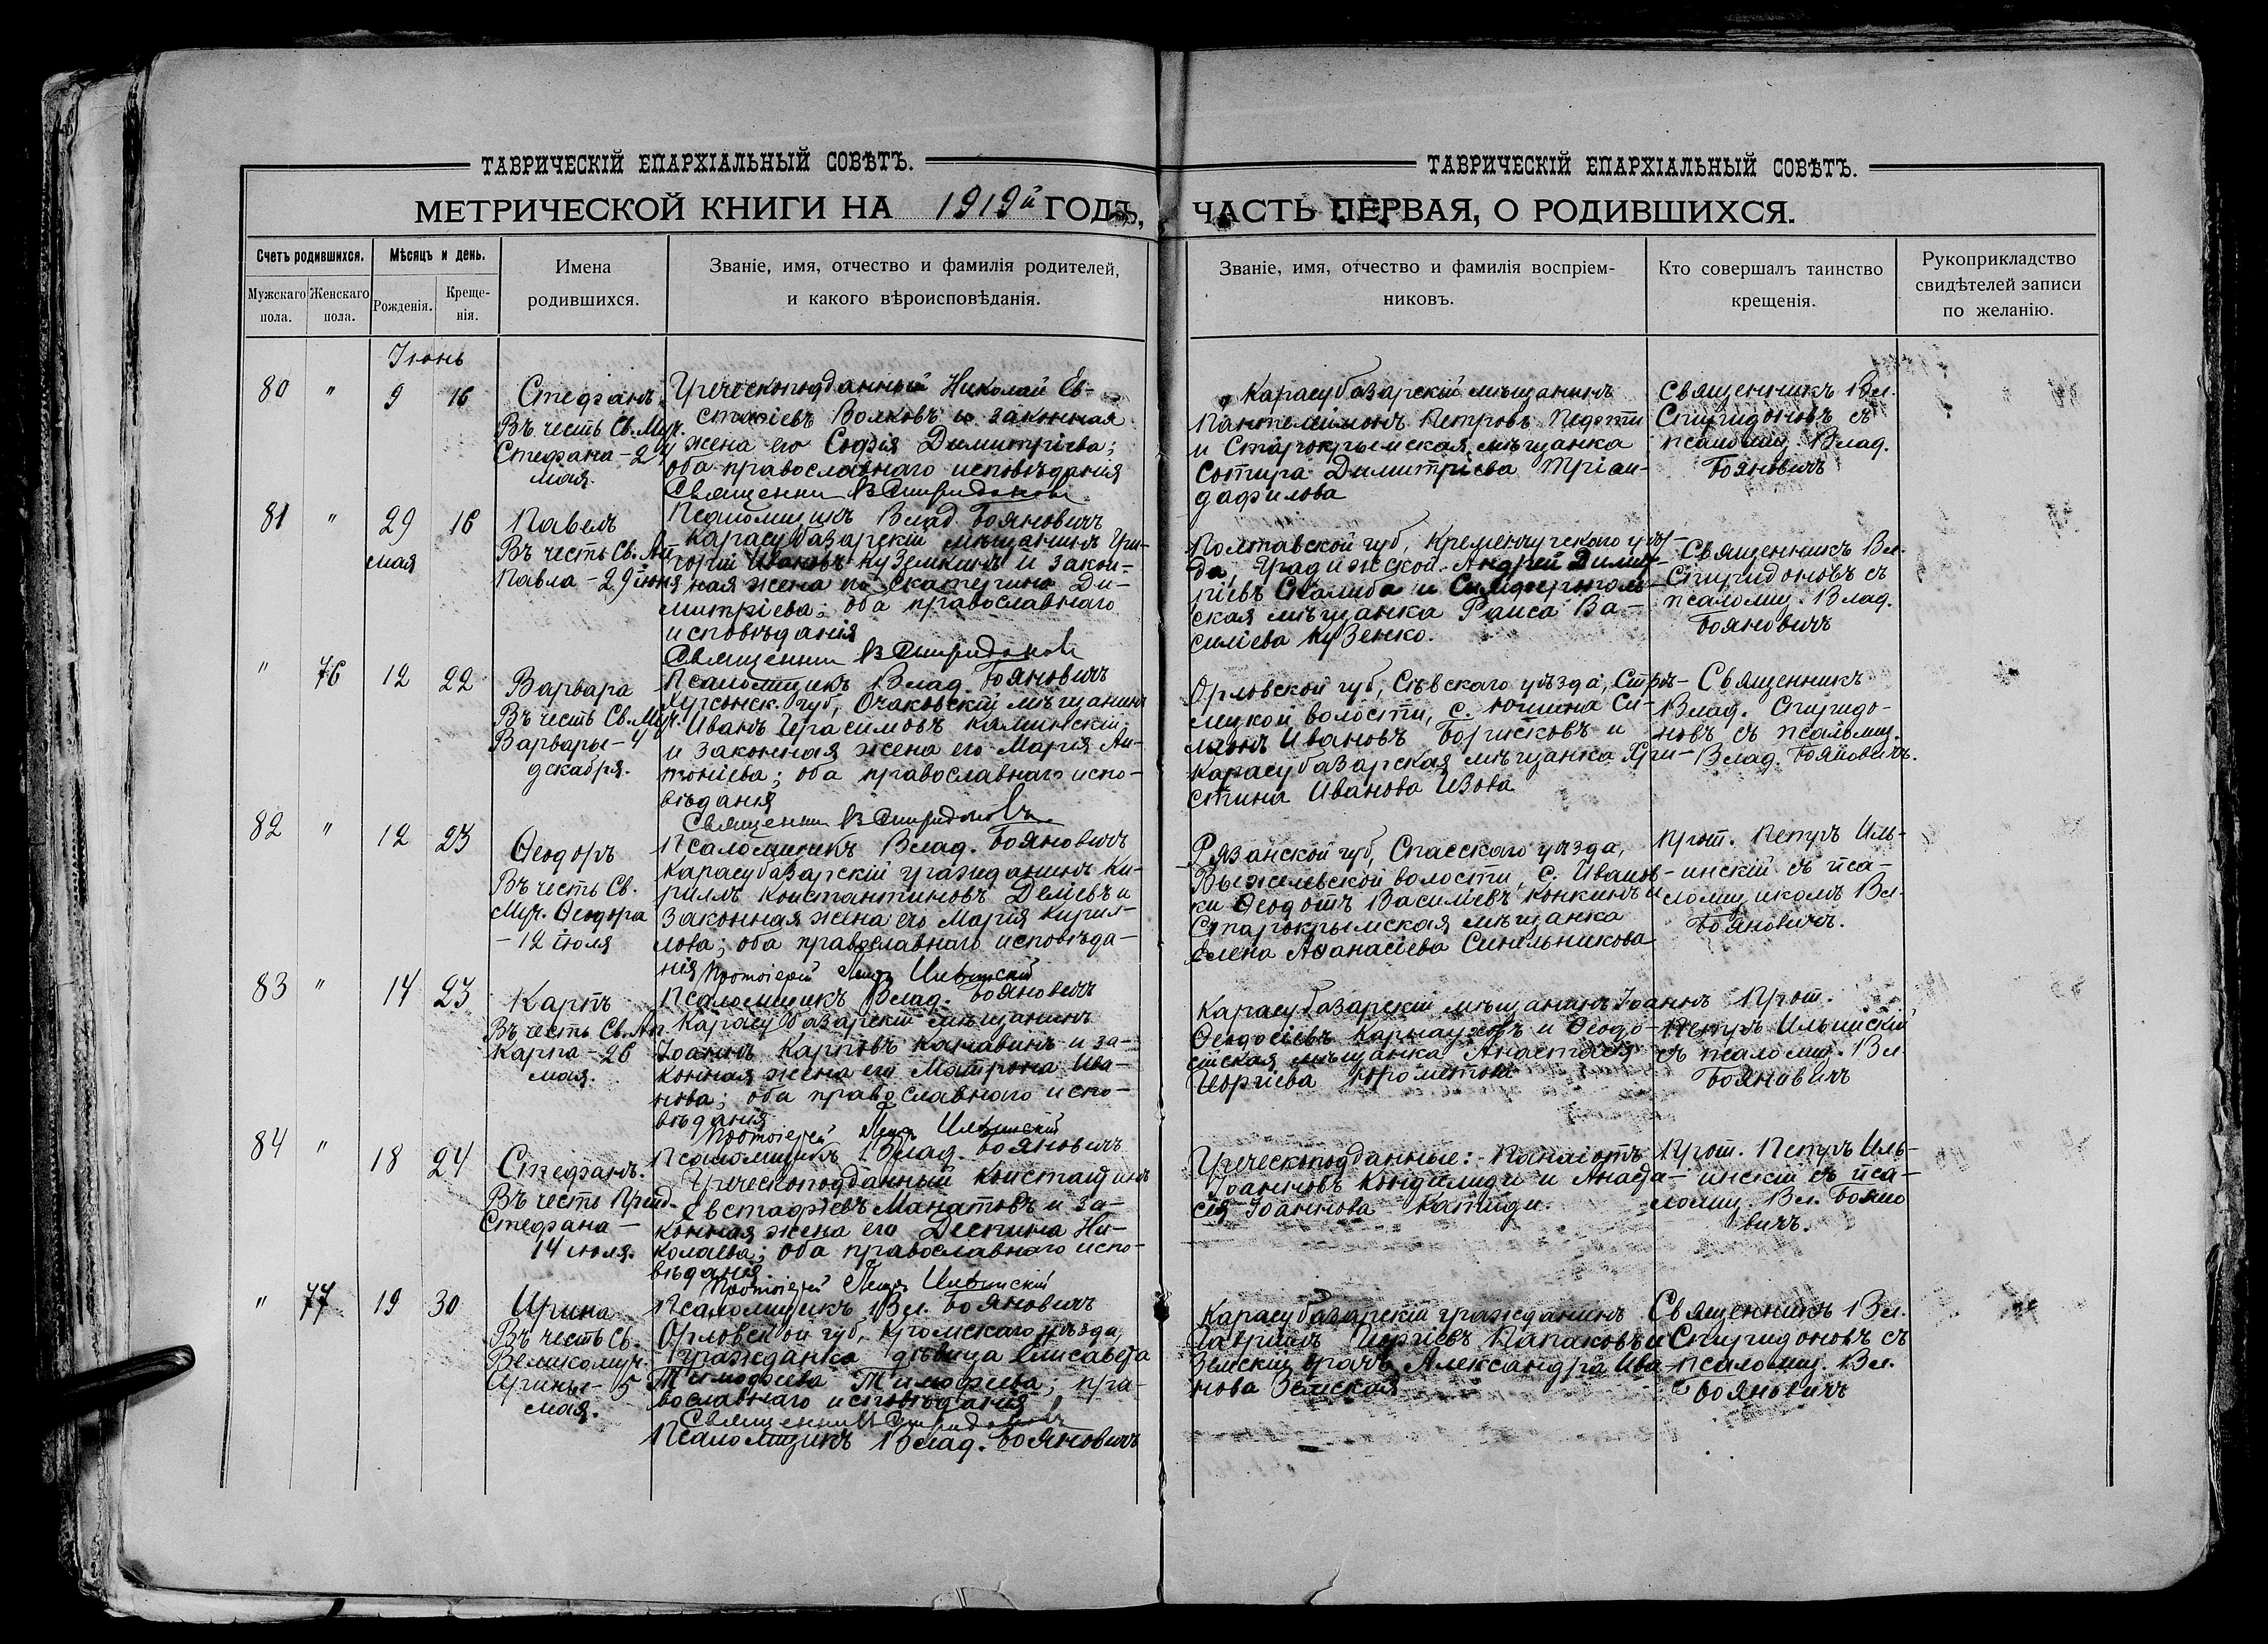 ТАВРИЧЕСКІЙ ЕПАРХІАЛЬНЫЙ СОВѢТЪ.
МЕТРИЧЕСКОЙ КНИГИ НА 1919й ГОДЪ,
Счетъ родившихся.
Мужскаго пола.
Женскаго пола.
Мѣсяцъ и день.
Рожденія.
Креще-
нія.
Имена
родившихся.
Званіе, имя, отчество и фамилія родителей,
и какого вѣроисповѣданія.
ТАВРИЧЕСКІЙ ЕПАРХІАЛЬНЫЙ СОВѢТЪ.
ЧАСТЬ ПЕРВАЯ, О РОДИВШИХСЯ.
Званіе, имя, отчество и фамилія воспріем-
никовъ.
Кто совершалъ таинство
крещенія.
Рукоприкладство
свидѣтелей записи
по желанію.
Іюнь
80 " 9 16
Стефанъ.
Въ честь Св. Муч.
Стефана - 24
мая.
Греческоподданный Николай Ев-
стафіевъ Волковъ и законная
жена его Софія Димитріева;
оба православнаго исповѣданія
Священник В Спиридонов
Псаломщикъ Влад. Бояновичъ
Карасубазарскій мѣщанинъ
Пантелимонъ Петровъ
и Старокрымская мѣщанка
Сотира Димитріева Тріан-
дафилова
Священникъ Вл.
Спиридоновъ съ
псаломщ. Влад.
Бояновичъ
81 " 29 16
мая
Павелъ
Въ честь Св. Ап.
Павла - 29 іюня
Карасубазарскій мѣщанинъ Гри-
горій Ивановъ Куземкинъ и закон-
ная жена его Екатерина Ди-
митріева; оба православнаго
исповѣданія
Священник В Спиридонов
Псаломщикъ Влад. Бояновичъ
Полтавской губ, Кременчугского уѣз-
да, Градижской Андрей Димит-
ріевъ Скалиба и Симферополь-
ская мѣщанка Раиса Ва-
силіева Кузенко.
Священникъ Вл.
Спиридоновъ съ
псаломщ. Влад.
Бояновичъ
" 76 12 22
Варвара
Въ честь Св. Муч.
Варвары - 4
декабря.
Херсонск. губ, Очаковскій мѣщанинъ
Иванъ Герасимовъ Калинскій
и законная жена его Марія Ан-
тоніева; оба православнаго испо-
вѣданія
Священник В Спиридоновъ
Псаломщикъ Влад. Бояновичъ
Орловской губ, Сѣвскаго уѣзда, Стрѣ-
лецкой волости, с. Юшина Си-
Ивановъ Борисковъ и
Карасубазарская мѣщанка Хри-
стина Иванова Изова
Священникъ
Влад. Спиридо-
новъ съ псаломщ.
Влад. Бояновичъ.
82 " 12 23
Ѳеодоръ
Въ честь Св.
Муч. Ѳеодора
- 12 іюля
Карасубазарскій гражданинъ Ки-
риллъ Константиновъ Деліевъ и
законная жена его Марія Кирил-
лова; оба православнаго исповѣда-
нія Протоіерей Петръ Ильинскій
Псаломщикъ Влад. Бояновичъ
Рязанской губ, Спасскаго уѣзда,
Выжелевской волости, с. Иванов-
ки Ѳеодотъ Василіевъ Конкинъ и
Старокрымская мѣщанка
Елена Аѳанасіева Синельникова
Прот. Петръ Иль-
инскій съ пса-
ломщикомъ Вл.
Бояновичъ.
83 " 14 23
Карпъ
Въ честь Св. Ап.
Карпа - 26
мая.
Карасубазарскій мѣщанинъ
Іоаннъ Карповъ Канавинъ и за-
конная жена его Матрона Ива-
нова; оба православнаго испо-
вѣданія
Протоіерей Петръ Ильинскій
Псаломщикъ Влад. Бояновичъ
Карасубазарскій мѣщанинъ Іоаннъ
Ѳеодосіевъ и Ѳеодо-
сійская мѣщанка Анастасія
Георгіева
Прот.
Петръ Ильинскій
съ псаломщ. Вл
Бояновичъ
84 " 18 24
Стефанъ.
Въ честь Препд.
Стефана -
14 іюля.
Греческоподданный Константинъ
Евстафіевъ Манатовъ и за-
конная жена его Деспина Ни-
колаева; оба православнаго испо-
вѣданія.
Протоіерей Петръ Ильинскій
Псаломщикъ Вл. Бояновичъ
Греческоподданные: Панаіотъ
Іоанновъ Кондилиди и Анаста-
сія Іоаннова Катиди.
Прот. Петръ Иль-
инскій съ пса-
ломщ. Вл. Бояно
вичъ.
" 77 19 30
Ирина
Въ честь Св.
Великомуч.
Ирины - 5
мая.
Орловской губ, Кромскаго уѣзда,
гражданка дѣвица Елисавета
Тимофеева Тимофеева; пра-
вославнаго исповѣданія
Священник В Спиридоновъ
Псаломщикъ Влад. Бояновичъ
Карасубазарскій гражданинъ
Гавриилъ Георгіевъ Папаковъ и
Земскій врачъ Александра Ива-
нова Земская
Священникъ Вл.
Спиридоновъ съ
псаломщ. Вл.
Бояновичъ